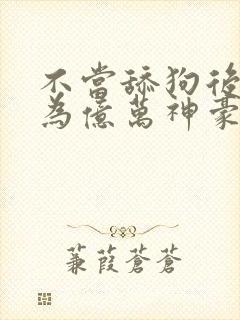 不當舔狗後
為億萬神豪
蒹葭蒼蒼